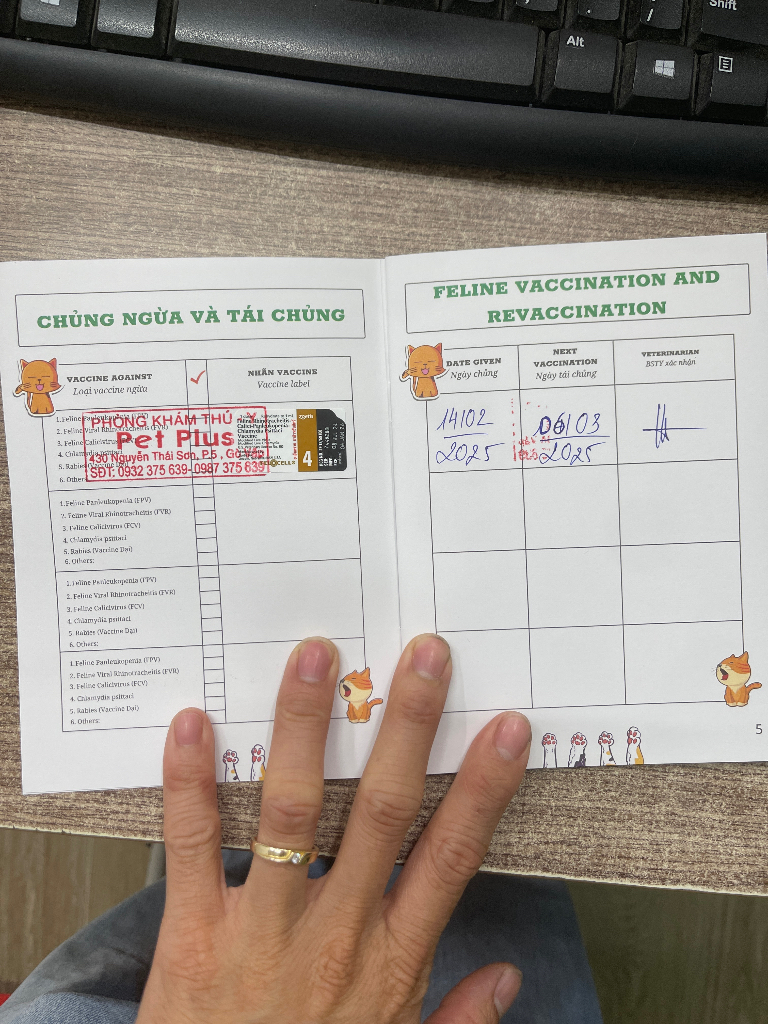 Shift
Alt
CHỦNG NGỪA VÀ TÁI CHỦNG
VACCINE AGAINST
Loại vaccine ngừa
NHÃN VACCINE
Vaccine label
1. Feline Panleukopenia (FPV)
2. Feline Viral Rhinotracheitis (FVR)
3. Feline Calicivirus (FCV)
4. Chlamydia psittaci
5. Rabies (Vaccine Dại)
6. Others:
PHÒNG KHÁM THÚ Y
Pet Plus
430 Nguyễn Thái Sơn, P.5, Gò Vấp
SĐT: 0932 375 639-0987 375 639
Feline Rhinotracheitis
Calici-Panleukopenia
Chlamydia Psittaci
Vaccine
4
1. Feline Panleukopenia (FPV)
2. Feline Viral Rhinotracheitis (FVR)
3. Feline Calicivirus (FCV)
4. Chlamydia psittaci
5. Rabies (Vaccine Dại)
6. Others:
1. Feline Panleukopenia (FPV)
2. Feline Viral Rhinotracheitis (FVR)
3. Feline Calicivirus (FCV)
4. Chlamydia psittaci
5. Rabies (Vaccine Dại)
6. Others:
1. Feline Panleukopenia (FPV)
2. Feline Viral Rhinotracheitis (FVR)
3. Feline Calicivirus (FCV)
4. Chlamydia psittaci
5. Rabies (Vaccine Dại)
6. Others:
FELINE VACCINATION AND
REVACCINATION
DATE GIVEN
Ngày chủng
NEXT
VACCINATION
Ngày tái chủng
VETERINARIAN
BSTY xác nhận
14/02
2025
06/03
2025
5